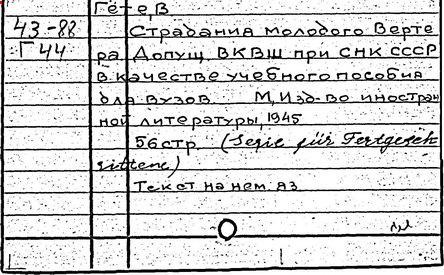 Гёте, В
43-88
Г44
Страдания молодого Верте
ра. Допущ. ВКВШ при СНК СССР
в качестве учебного пособия
для вузов. М, Изд-во иностран
ной литературы, 1945
56 стр. (Serie für Fortgesch
rittene)
Текст на нем. яз.